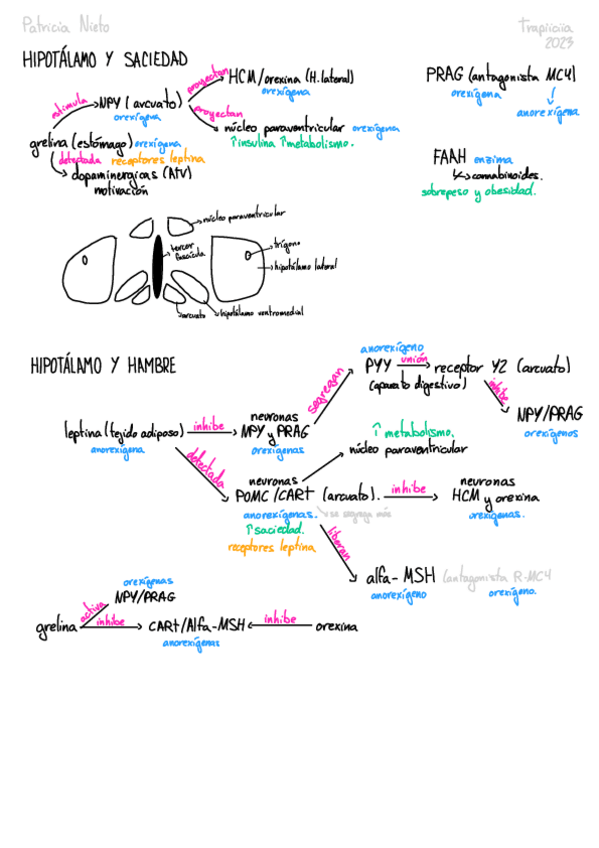 Patricia Nieto
Trapliciia
2023
HIPOTÁLAMO Y SACIEDAD
estimula
NPY (arcuato)
orexígena
proyectan
HCM/orexina (H. lateral)
orexígena
proyectan
núcleo paraventricular orexígena
↑insulina ↑metabolismo.
grelina (estómago) orexígena
detectada receptores leptina
dopaminergicas (ATV)
motivación
PRAG (antagonista MC4)
orexígena
anorexígena.
FAAH enzima
cannabinoides.
sobrepeso y obesidad.
núcleo paraventricular
tercer
fascícula
trígono
hipotálamo lateral
arcuato
hipotálamo ventromedial
HIPOTÁLAMO Y HAMBRE
anorexígeno
PYY unión receptor Y2 (arcuato)
(aparato digestivo)
segregan
inhibe
NPY/PRAG
orexígenos
leptina (tejido adiposo) inhibe
anorexígena
neuronas
NPY y PRAG
orexígenas
↑ metabolismo.
núcleo paraventricular
detectada
neuronas
POMC/CART (arcuato). inhibe
anorexígenas. se segrega más
↑saciedad.
receptores leptina
neuronas
HCM y orexina
orexígenas.
liberan
alfa-MSH (antagonista R-MC4
anorexígeno orexígeno.
orexígenas
NPY/PRAG
activa
grelina inhibe CART/Alfa-MSH inhibe orexina
anorexígenas